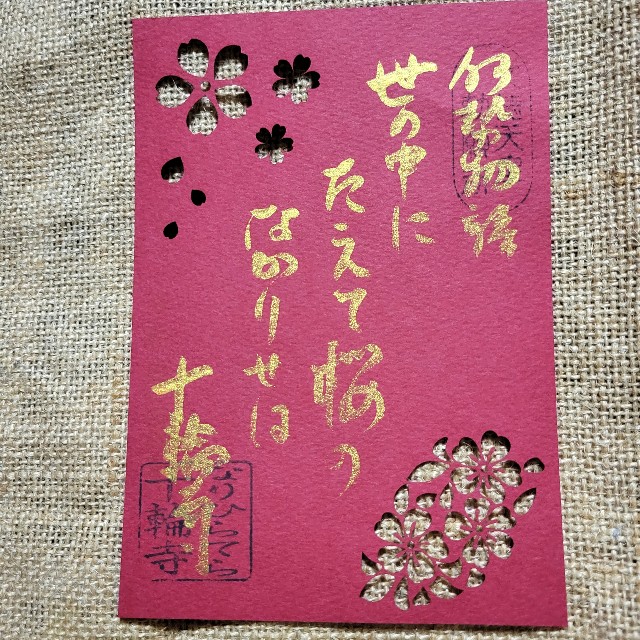 伊勢物語
世の中に
たえて桜の
なかりせは
十輪寺
なりひらてら
十輪寺